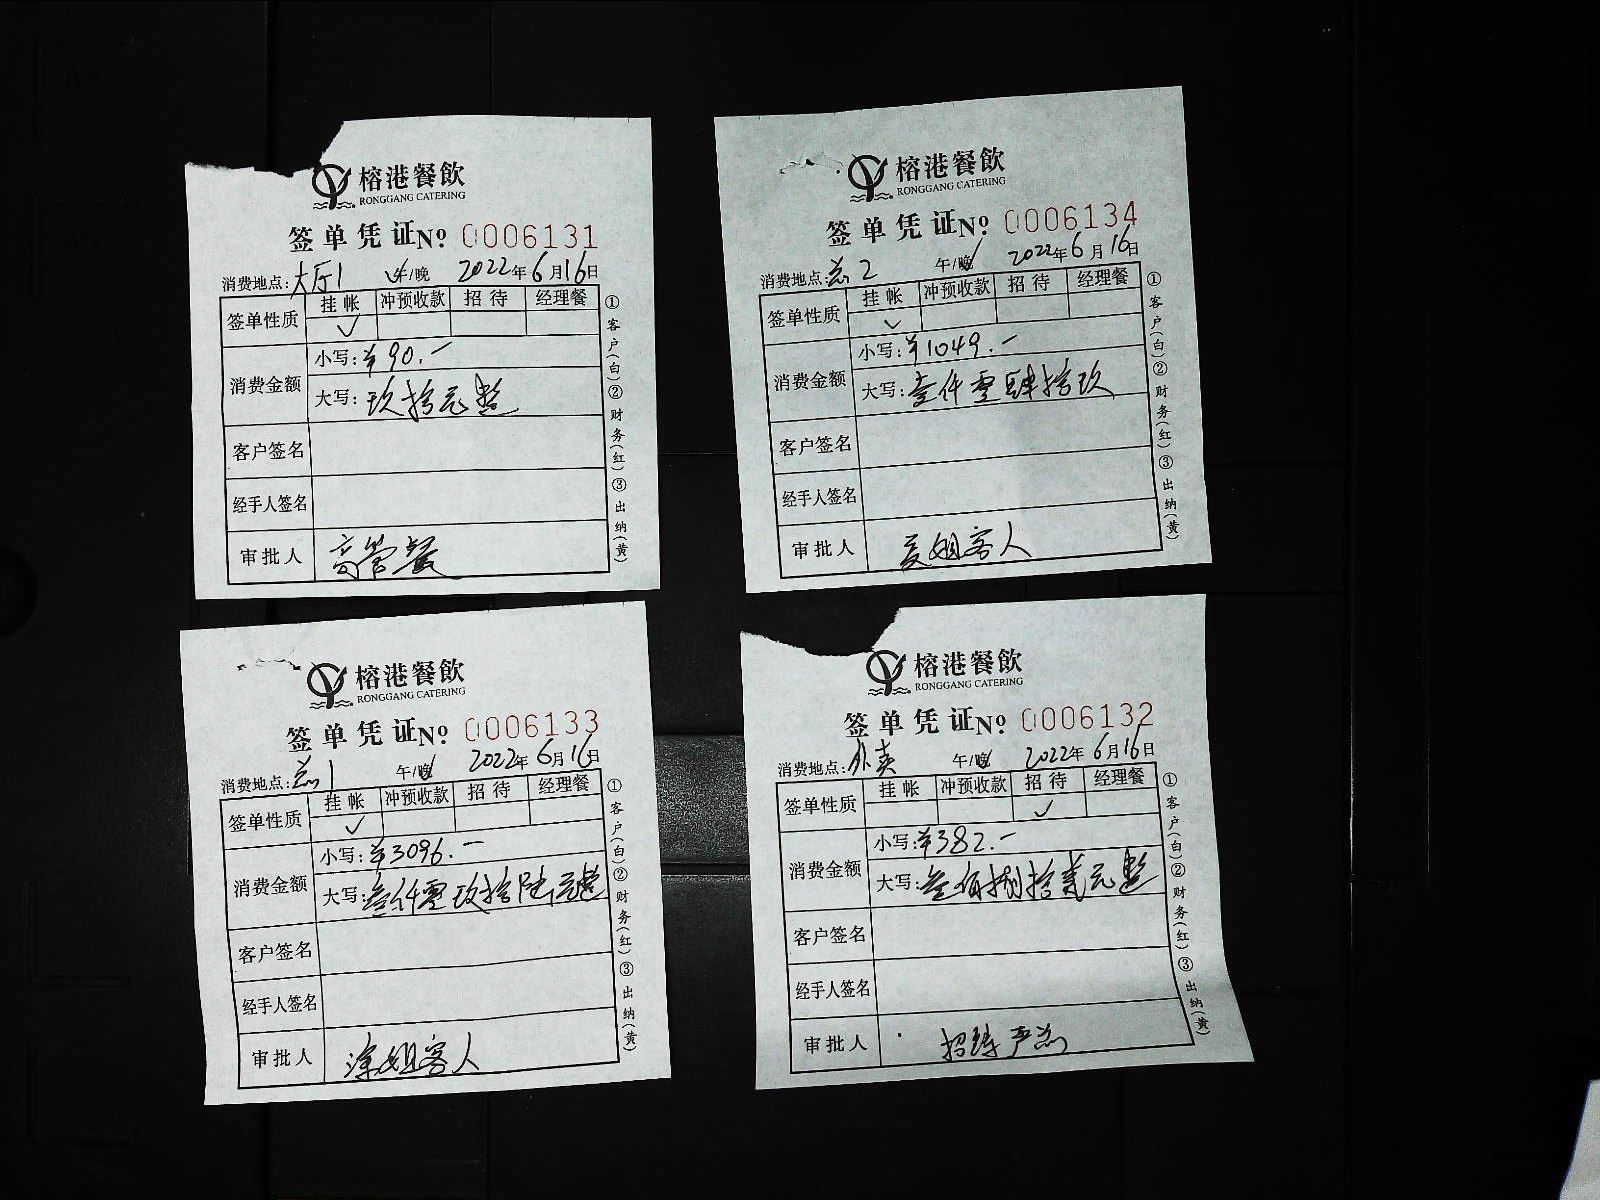 榕港餐飲
RONGGANG CATERING
签单凭证 № 0006131
消费地点: 大厅1 午/晚 2022年6月16日
签单性质 挂帐 冲预收款 招待 经理餐
✓
消费金额 小写: ¥90.-
大写: 玖拾元整
客户签名
经手人签名
审批人 高管餐
①客户(白)②财务(红)③出纳(黄)
榕港餐飲
RONGGANG CATERING
签单凭证 № 0006134
消费地点: 总2 午/晚 2022年6月16日
签单性质 挂帐 冲预收款 招待 经理餐
✓
消费金额 小写: ¥1049.-
大写: 壹仟零肆拾玖
客户签名
经手人签名
审批人 姐客人
①客户(白)②财务(红)③出纳(黄)
榕港餐飲
RONGGANG CATERING
签单凭证 № 0006133
消费地点: 总1 午/晚 2022年6月16日
签单性质 挂帐 冲预收款 招待 经理餐
✓
消费金额 小写: ¥3096.-
大写: 叁仟零玖拾陆元整
客户签名
经手人签名
审批人 涂姐客人
①客户(白)②财务(红)③出纳(黄)
榕港餐飲
RONGGANG CATERING
签单凭证 № 0006132
消费地点: 外卖 午/晚 2022年6月16日
签单性质 挂帐 冲预收款 招待 经理餐
✓
消费金额 小写: ¥382.-
大写: 叁佰捌拾贰元整
客户签名
经手人签名
审批人 招待严总
①客户(白)②财务(红)③出纳(黄)